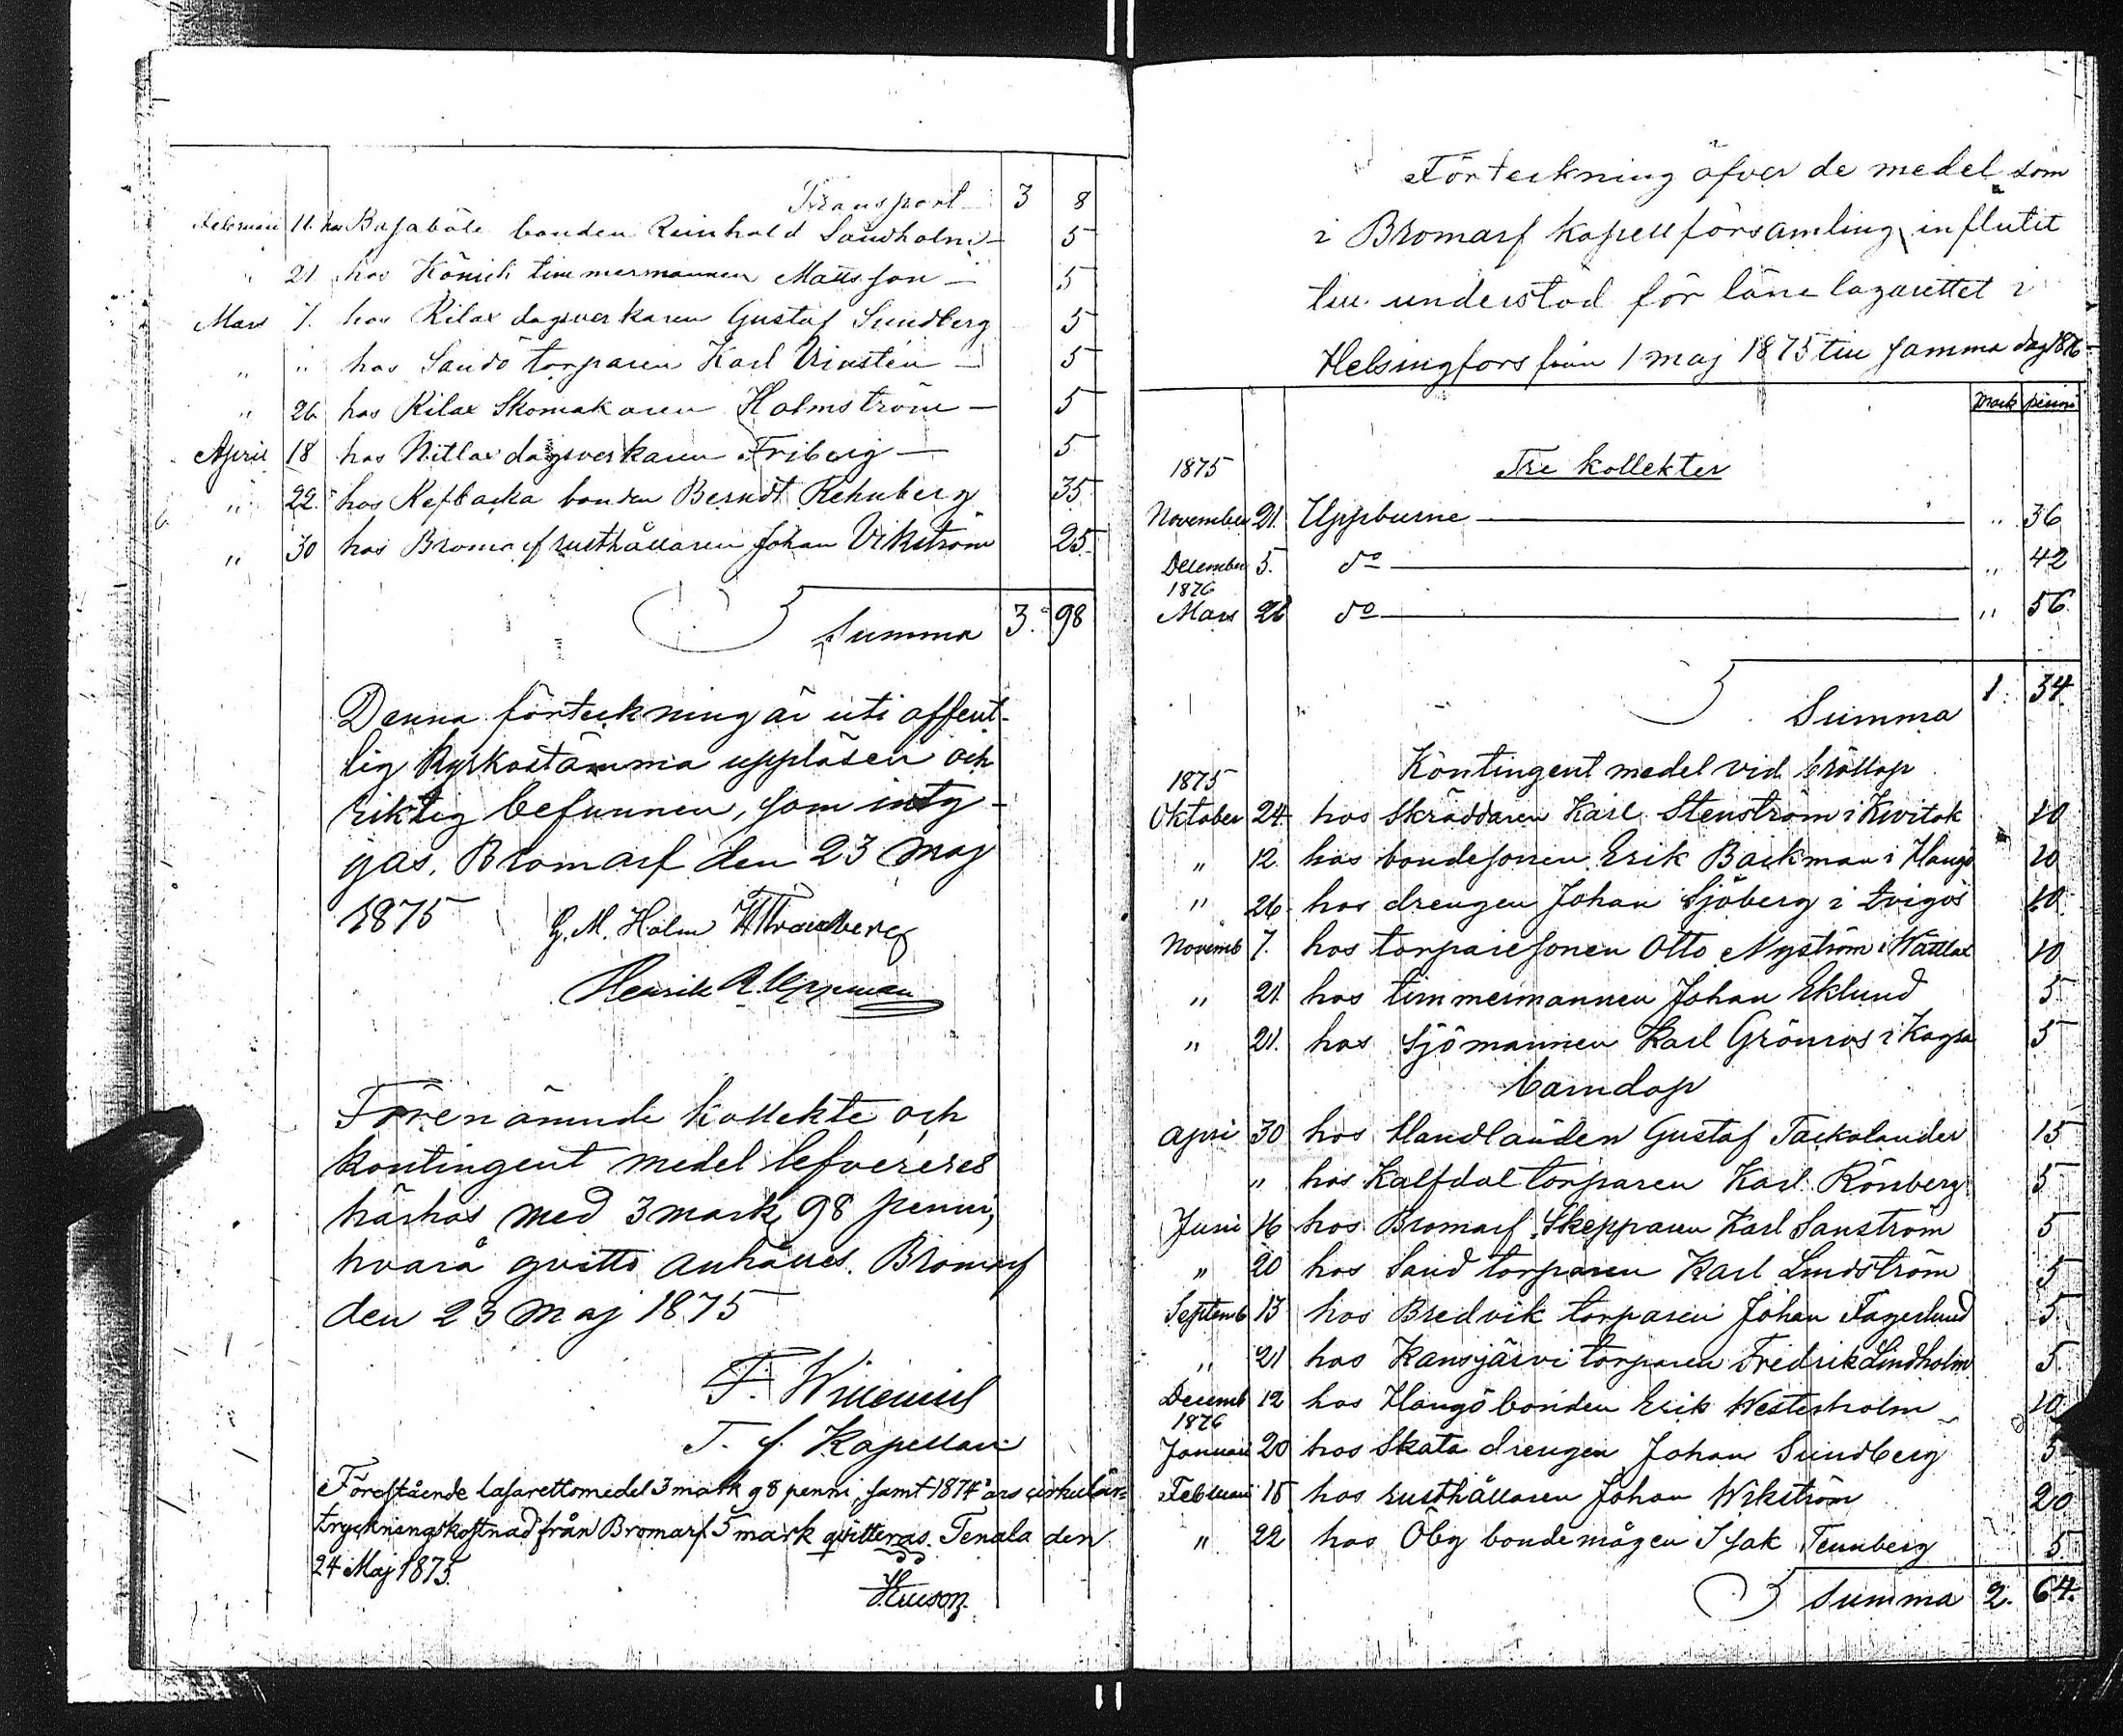 Transport 3 8
Februari 11. hos Basaböle bonden Reinhold Sandholm — 5
" 21 hos Könick timmermannen Mattsson — 5
Mars 7. hos Rilax dagsverkaren Gustaf Sundberg 5
" " hos Sandö torparen Karl — 5
" 26 hos Rilax Skomakaren Holmström — 5
April 18 hos Nitlax dagsverkaren Friberg — 5
" 22. hos Refbacka bonden Berndt Rehnberg 35
" 30 hos Bromarf rusthållaren Johan Vikström 25
Summa 3. 98
Denna förteckning är uti offent-
lig Kyrkostämma uppläsen och
riktig befunnen, som inty-
gas. Bromarf den 23 Maj
1875 G. M. Holm
Henrik
Förenämnde kollekte och
kontingent medel lefvereres
härhos med 3 mark 98 penni,
hvarå qvitto anhålles. Bromarf
den 23 Maj 1875
F.
T. f. Kapellan
Förestående lasarettsmedel 3 mark 98 penni, samt 1874 års cirkulär-
tryckningskostnad från Bromarf 5 mark qvitteras. Tenala den
24 Maj 1875.
Förteckning öfver de medel som
i Bromarf kapellförsamling influtit
till understöd för läns lazarettet i
Helsingfors från 1 maj 1875 till samma dag 1876
Mark penni
1875 Tre kollekter
November 21. Uppburne — " 36
December 5. do — " 42
1876
Mars 26 do — " 56
Summa 1. 34
Kontingent medel vid bröllop
1875
Oktober 24. hos skräddaren Karl Stenström i Kvitok 10
" 12. hos bondesonen Erik Backman i Hangö 20
" 26 hos drengen Johan Sjöberg i 10
Novemb 7. hos torparesonen Otto Nyström i 10
" 21. hos timmermannen Johan Eklund 5
" 21. hos Sjömannen Karl Grönros i 5
barndop
April 30 hos Handlanden Gustaf Tackolander 15
" hos Kalfdal torparen Karl Rönberg 5
Juni 16 hos Bromarf Skepparen Karl Sanström 5
" 20 hos Sand torparen Karl Lindström 5
Septemb 13 hos Bredvik torparen Johan Fagerlund 5
" 21 hos Kansjärvi torparen Fredrik Lindholm 5.
Decemb 12 hos Hangö bonden Erik Westerholm 10
1876
Januari 20 hos Skata drengen Johan Sundberg 5
Februari 15 hos rusthållaren Johan Wikström 20
" 22 hos Öby bondemågen Isak Tennberg 5.
Summa 2. 64.